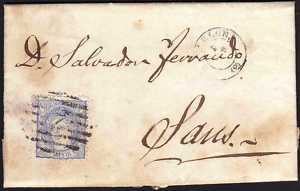 D. Salvador Ferrando
Sans.